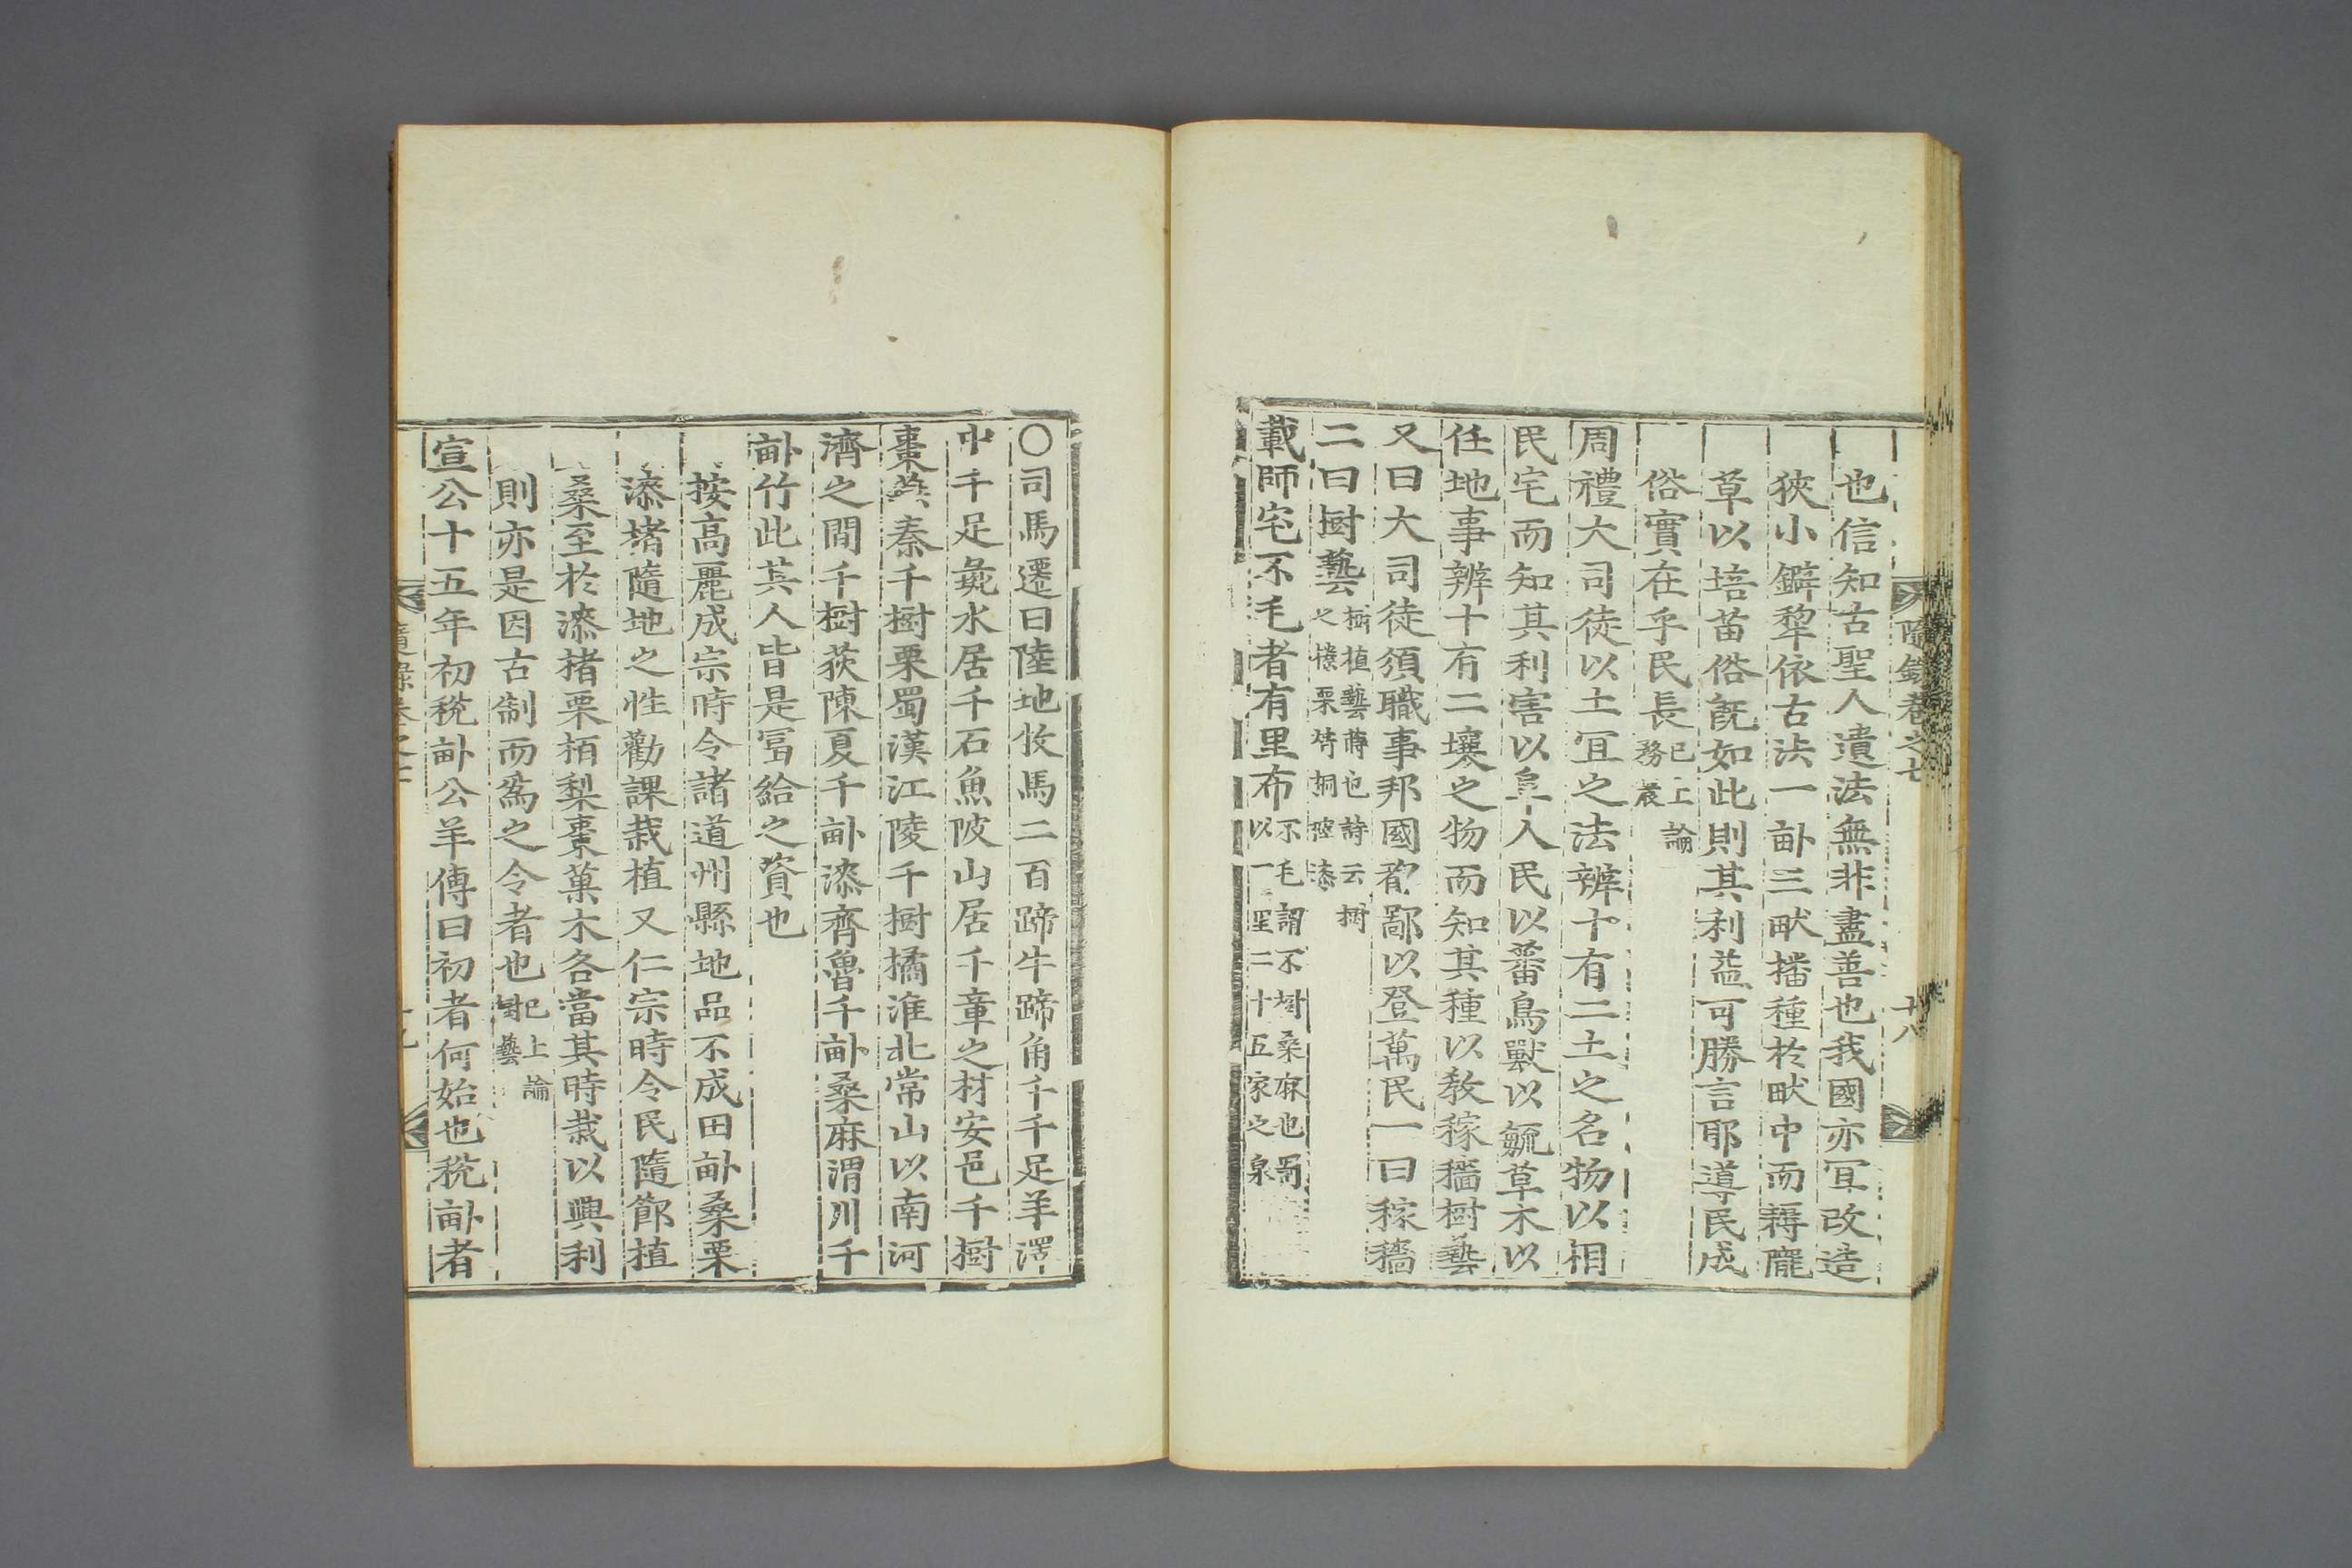 隨錄卷之七
十八
也信知古聖人遺法無非盡善也我國亦冝改造
狹小鐴犂依古法一畝三畎播種於畎中而耨隴
草以培苗俗旣如此則其利益可勝言耶導民成
俗實在乎民長已上論務農
周禮大司徒以土冝之法辨十有二土之名物以相
民宅而知其利害以阜人民以蕃鳥獸以毓草木以
任地事辨十有二壤之物而知其種以敎稼穡樹藝
又曰大司徒須職事邦國都鄙以登萬民一曰稼穡
二曰樹藝樹植藝蒔也詩云樹之榛栗椅桐梓漆
載師宅不毛者有里布不毛謂不樹桑麻也罰以一里二十五家之泉
○司馬遷曰陸地牧馬二百蹄牛蹄角千千足羊澤
中千足彘水居千石魚陂山居千章之材安邑千樹
棗燕秦千樹栗蜀漢江陵千樹橘淮北常山以南河
濟之間千樹荻陳夏千畝漆齊魯千畝桑麻渭川千
畝竹此其人皆是冨給之資也
按高麗成宗時令諸道州縣地品不成田畝桑栗
漆楮隨地之性勸課栽植又仁宗時令民隨節植
桑至於漆楮栗栢梨棗菓木各當其時栽以興利
則亦是因古制而爲之令者也已上論樹藝
宣公十五年初稅畝公羊傳曰初者何始也稅畝者